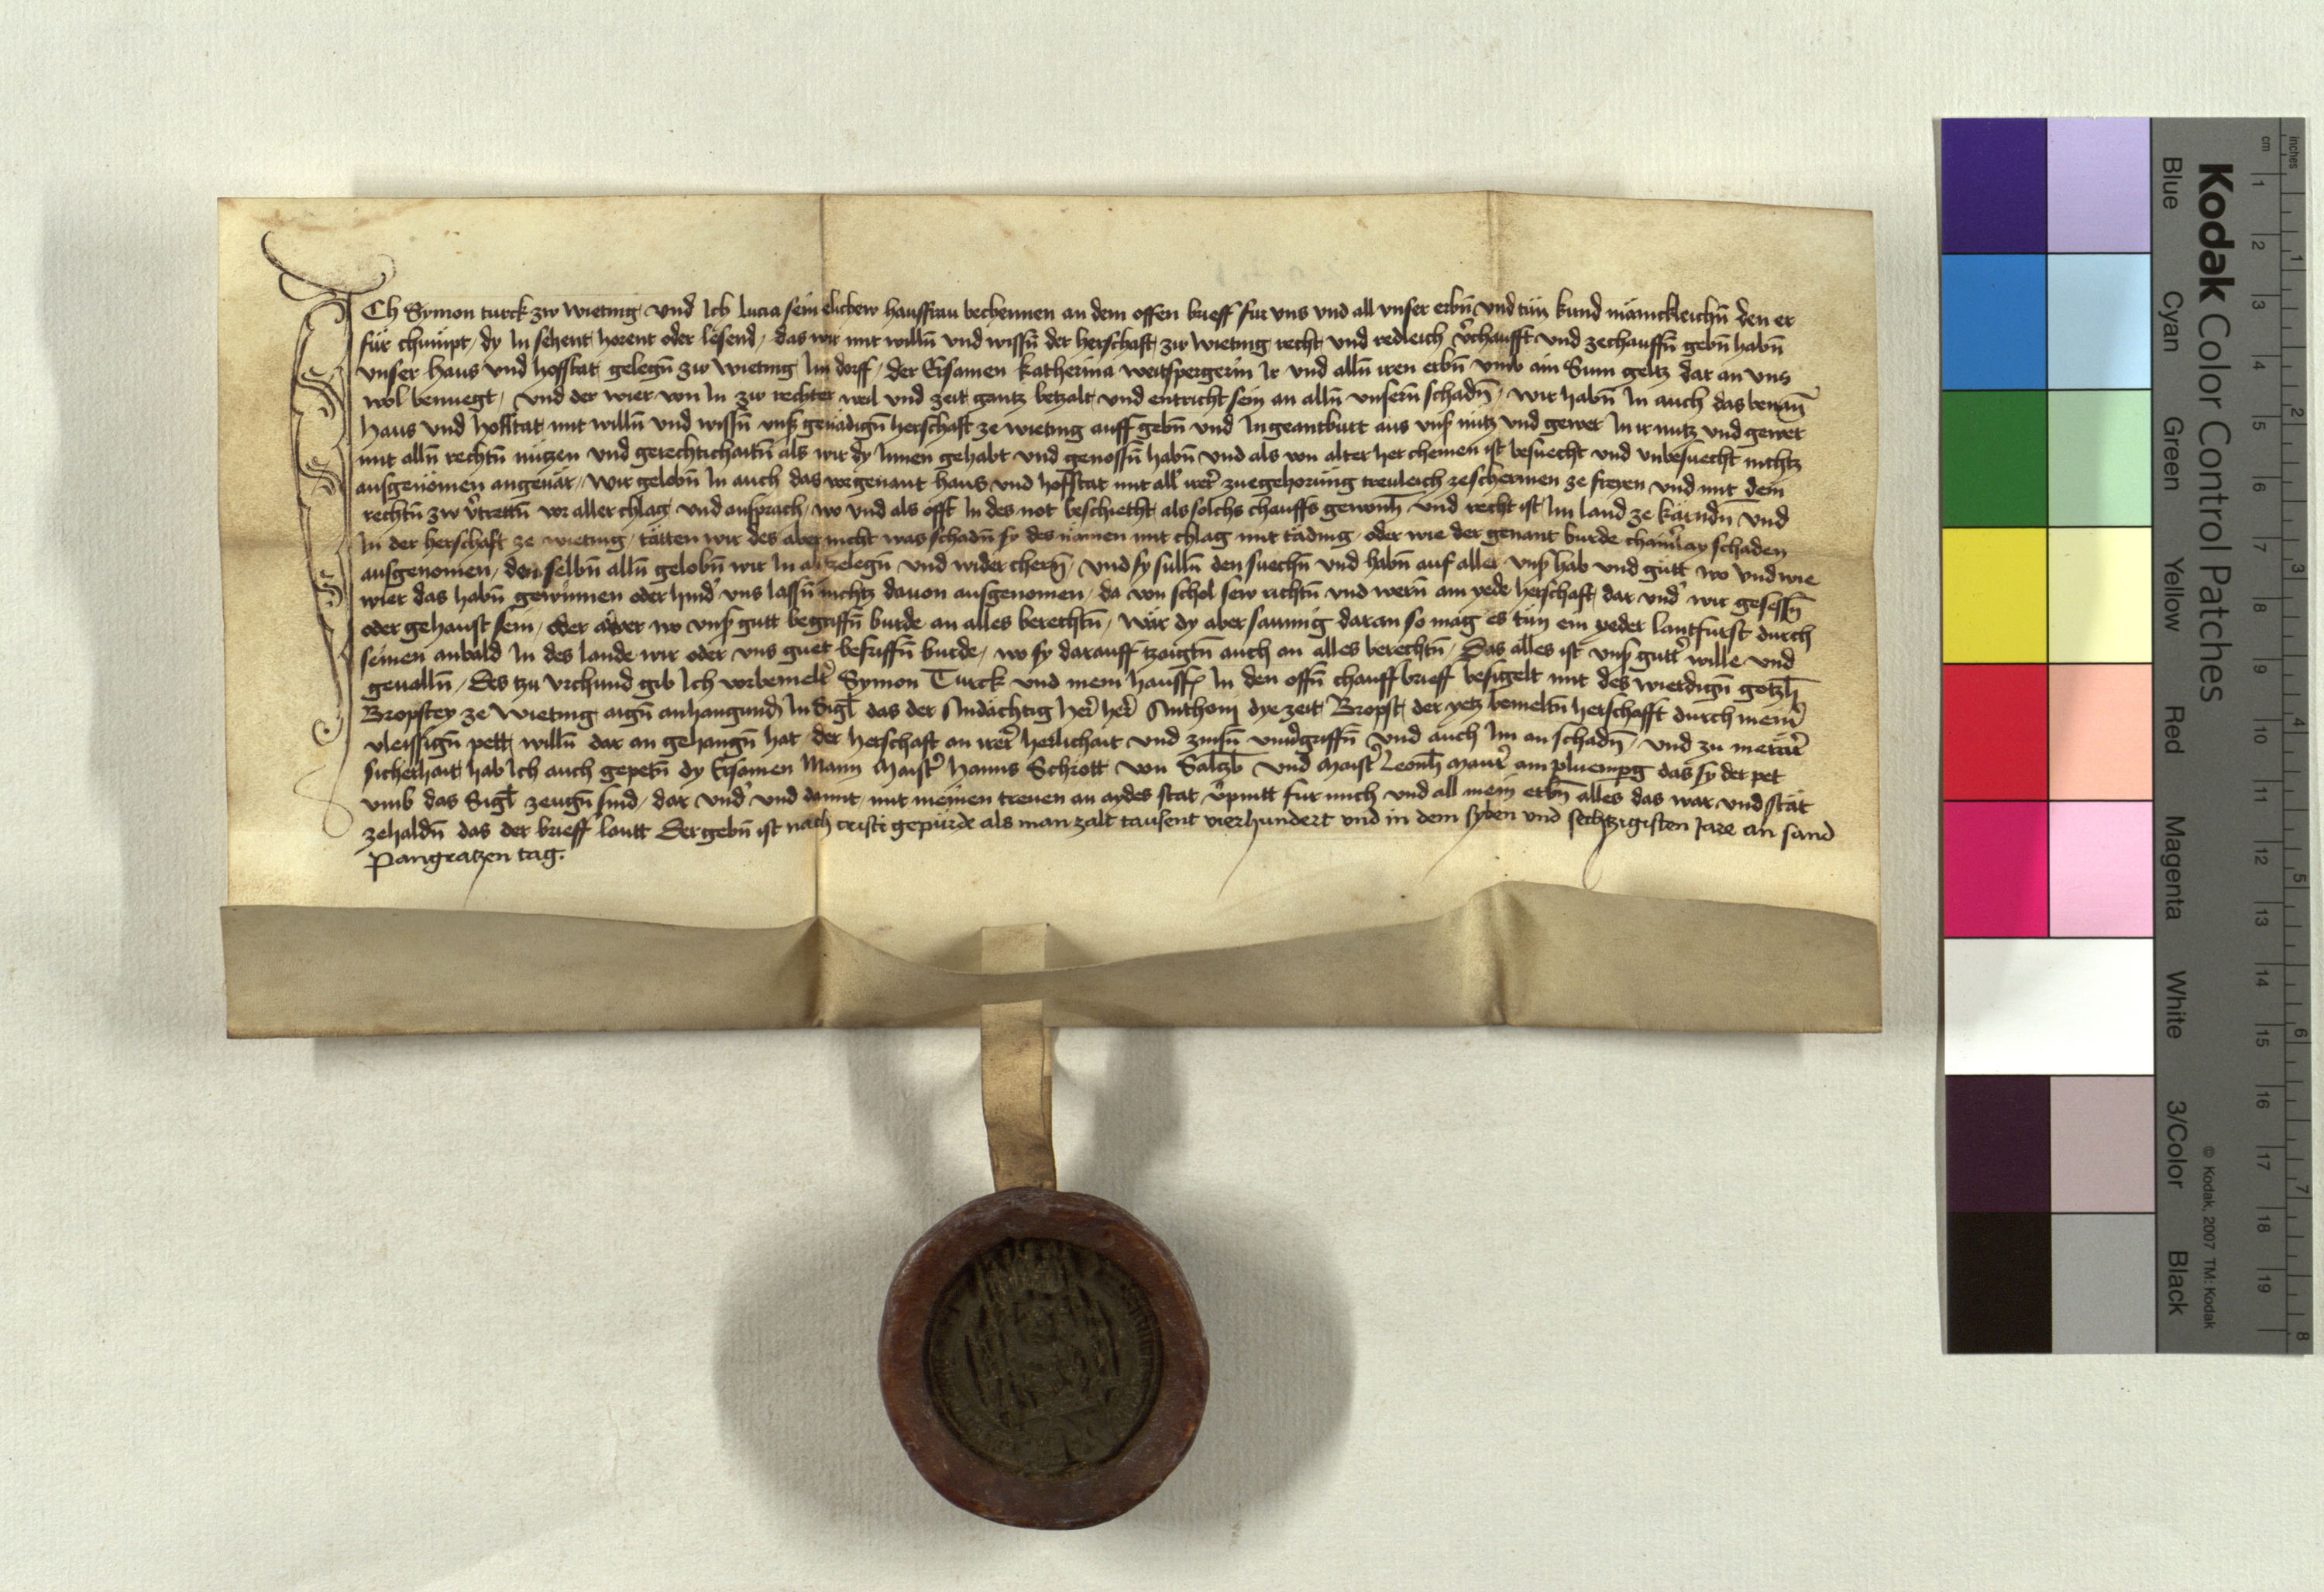 Ich Symon turck zw wieting und Ich lucia sein elichew hausfrau bechennen an dem offen brieff fur uns vnd all unser erbn̄ und tün kund mänickleichn̄ den er
für chümpt, dy In sehent horent oder lesend, das wir mit willn̄ und wissn̄ der herschaft zw wieting recht und redleich v̓chaufft und zechauffn̄ gebn̄ habn̄
unser haus und hofstat gelegn̄ zw wieting Im dorff, der Ersamen katherina weitspergerin Ir und alln̄ iren erbn̄ umb ain Sum geltz dar an uns
wol benuegt, und der wier von In zw rechter weil und zeit gantz betzalt und entricht sein an alln̄ unsern schadn̄, wir habn̄ In auch das benan̄
haus und hofstat mit willn̄ und wissn̄ unß genädign̄ herschaft ze wieting auff gebn̄ und Ingeantburt aus unß nutz und gewer In ir nutz und gewer
mit alln̄ rechtn̄ nützen und gerechtichaitn̄ als wir dy Innen gehabt und genossn̄ habn̄ und als von alter her chemen ist besuecht und unbesuecht nichtz
ausgenömen angeuär, wir gelobn̄ In auch das vorgenant haus und hofstat mit all irer̓ zuegehorüng treuleich zeschermen ze freyen und mit dem
rechtn̄ zw v̓trettn̄ vor aller chlag und ansprach, wo und als offt In des not beschiecht als solchs chauffs gewonh̄ und recht ist Im land ze kärndn̄ und
In der herschaft ze wieting, tätten wir des aber nicht was schadn̄ sy des nämen mit chlag mit täding, oder wie der genant burde chainerlay schaden
ausgenomen, den selbn̄ alln̄ gelobn̄ wir In ab zelegn̄ und wider chern̄, und sy sulln̄ den suechn̄ und habn̄ auf aller unß hab und gutt wo und wie
wier das habn̄ gewinnen oder hind̓ uns lassn̄ nichtz dauon ausgenomen, da von schol sew richtn̄ und wern̄ ain yede herschaft, dar und̓ wir gesessn̄
oder gehaust sein, oder aber wo unß gutt begriffn̄ burde an alles berechtn̄, wär dy aber saumig daran so mag es tün ein yeder lantfürst durch
seinen anbald In des lande wir oder uns guet begriffn̄ burde, wo sy darauff tzaigtn̄ auch an alles berechtn̄, Das alles ist unß gutt̓ wille und
geualln̄, Des tzu urchund gib Ich vorbemelt̓ Symon Turck und mein hausf In den offn̄ chauffbrieff besigelt mit des wierdign̄ gotzh̄
Bropstey ze wieting aign̄ anhangund̓ In Sigl̄ das der Andächtig her̓ her̓ Anthonj dye zeit Bropst, der yetz bemeltn̄ herschafft durch meinr̓
vleissign̄ pett willn̄ dar an gehangn̄ hat der herschaft an irer̓ herlichait und zinsn̄ und auch Im an schadn̄, und zu merär̓
sicherhait hab Ich auch gepetn̄ dy Ersamen Mann Maist̓ hanns Schrott von Saltzb̄ und maist̓ Leonh̄ maur̓ am pluempg das sy der pet
umb das Sigl̄ zeugn̄ sind, dar und̓ und damit, mit meinen treuen an aydes stat v̓pintt für mich und all mein erbn̄ alles das war und stät
zehaldn̄ das der brieff lautt Der gebn̄ ist nach cristi gepürde als man zalt tausent vierhundert und in dem syben und sechtzigisten Jare an sand
Pangratzen tag.
Kodak Color Control Patches
Blue Cyan Green Yellow Red Magenta White 3/Color Black
© Kodak, 2007 TM: Kodak
cm 1 2 3 4 5 6 7 8 9 10 11 12 13 14 15 16 17 18 19
inches 1 2 3 4 5 6 7 8